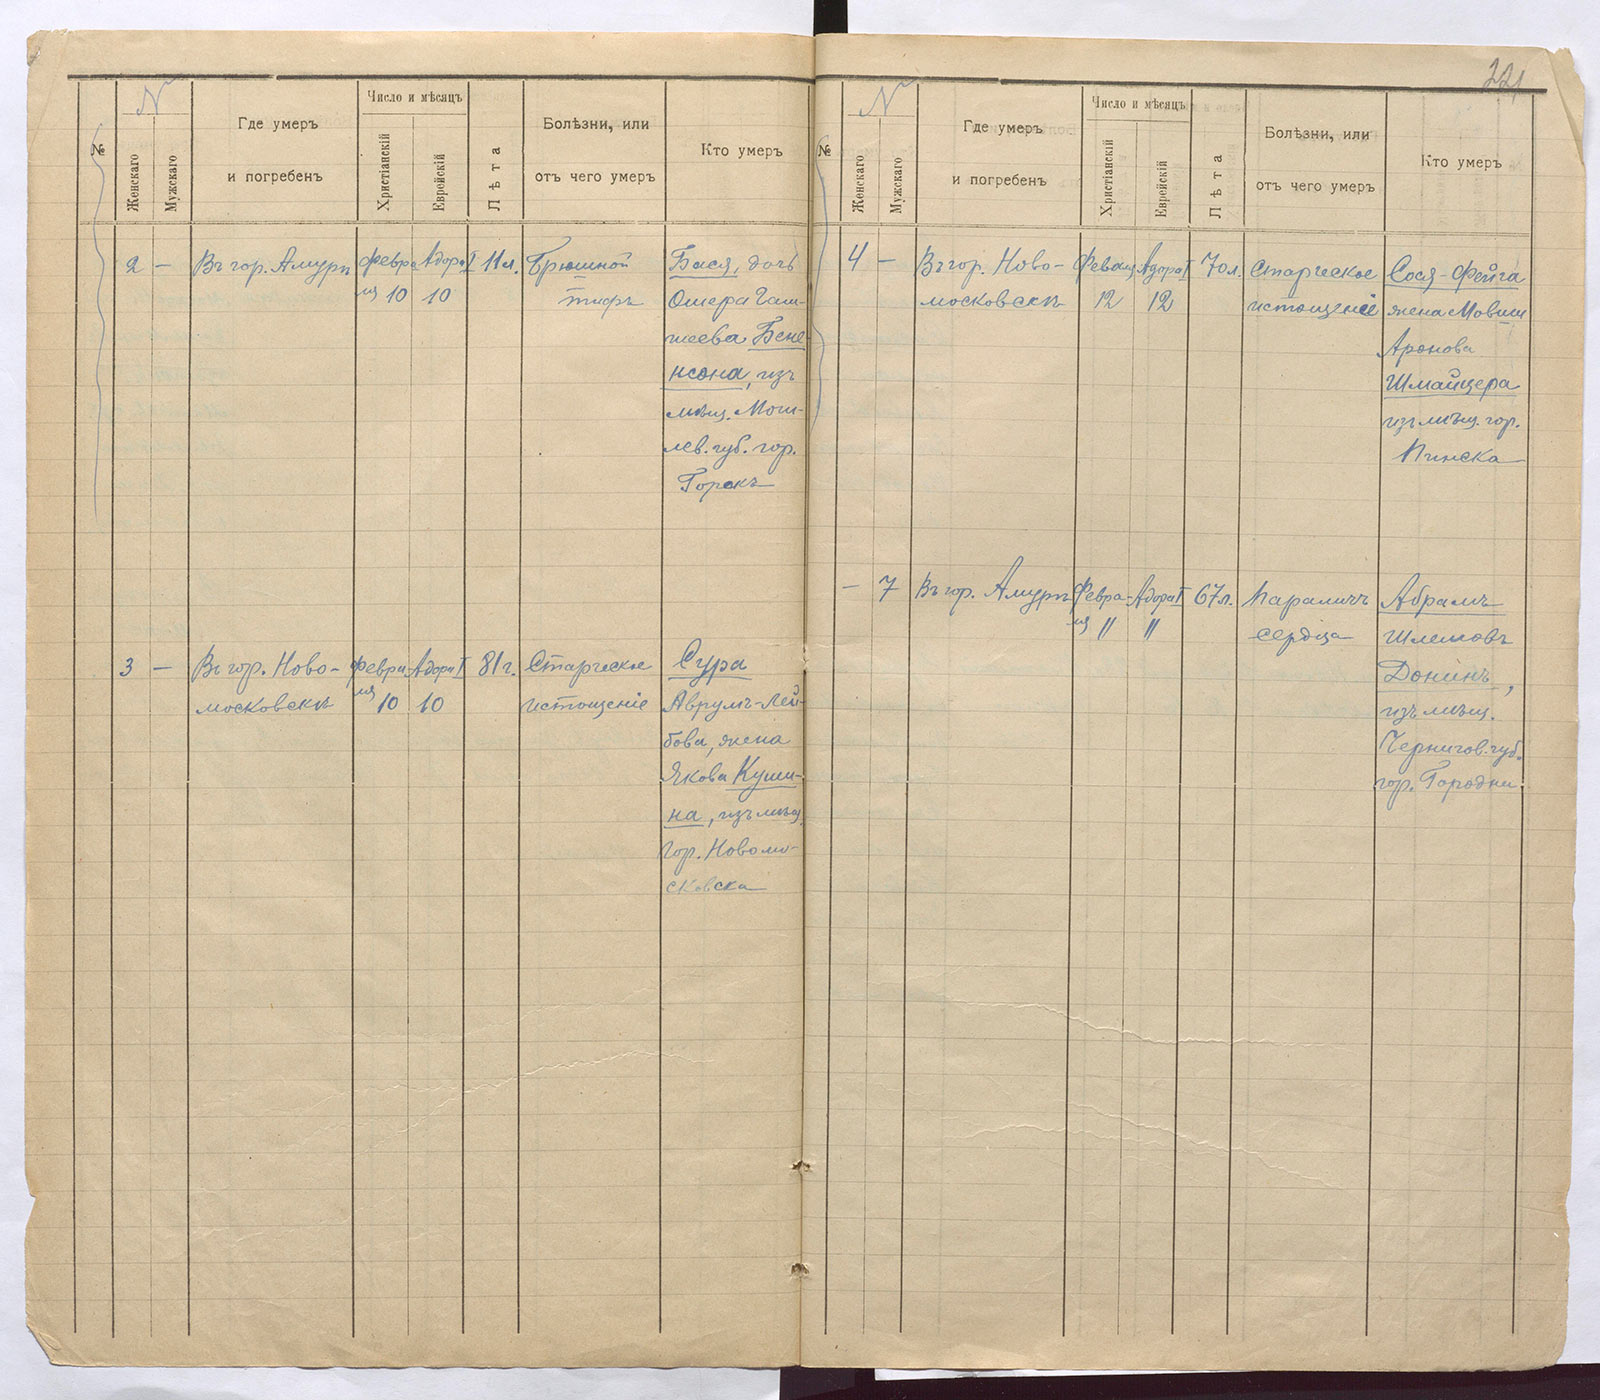 221
N
№
Женскаго
Мужскаго
Где умеръ
и погребенъ
Число и мѣсяцъ
Христіанскій
Еврейскій
Лѣта
Болѣзни, или
отъ чего умеръ
Кто умеръ
2 — Въ гор. Амурѣ Февра- Адора I 11 л. Брюшной Бася, дочь
ля 10 10 тифъ Ошера Гаш-
Бене-
нсона, изъ
мѣщ. Моги-
лев. губ. гор.
Горокъ
3 — Въ гор. Ново- Февра- Адора I 81 г. Старческое Сура
московскѣ ля 10 10 истощеніе Аврумъ-Лей-
бова, жена
Якова Куши-
на, изъ мѣщ.
гор. Новомо-
сковска
N
№
Женскаго
Мужскаго
Где умеръ
и погребенъ
Число и мѣсяцъ
Христіанскій
Еврейскій
Лѣта
Болѣзни, или
отъ чего умеръ
Кто умеръ
4 — Въ гор. Ново- Февраля Адора I 70 л. Старческое Сося-Фейга
московскѣ 12 12 истощеніе жена Мовши
Аронова
Шмайцера
изъ мѣщ. гор.
Пинска
— 7 Въ гор. Амурѣ Февра- Адора I 67 л. Параличъ Абрамъ
ля " " сердца Шлемовъ
Донинъ,
изъ мѣщ.
Чернигов. губ.
гор. Городни